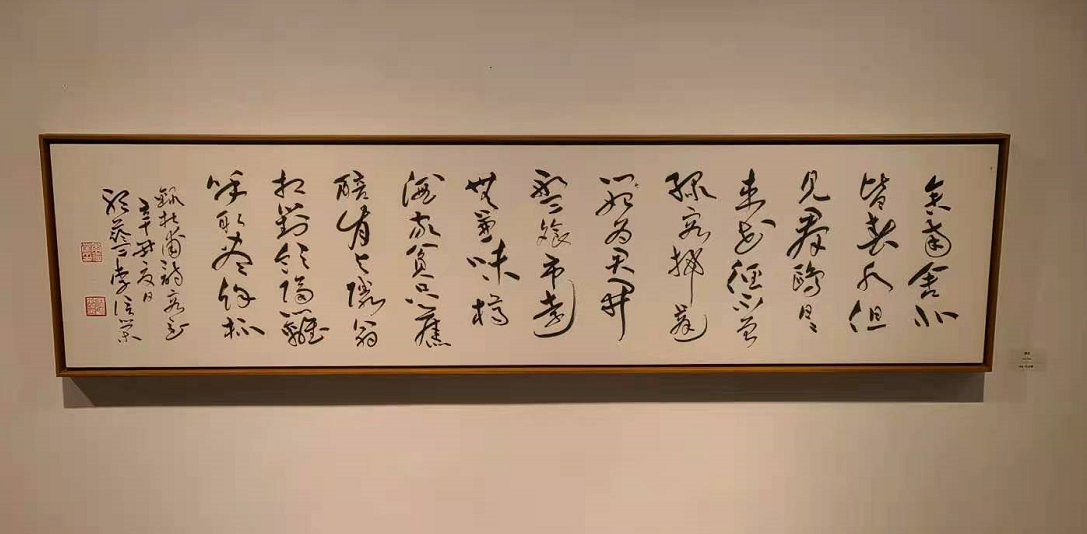 舍南舍北
皆春水但
見群鷗日日
来花徑不曾
緣客掃蓬
门今始为君開
盤飧市遠
無兼味樽
酒家貧只舊
醅肯与隣翁
相對飲隔籬
呼取盡餘杯
録杜甫詩客至
夏日